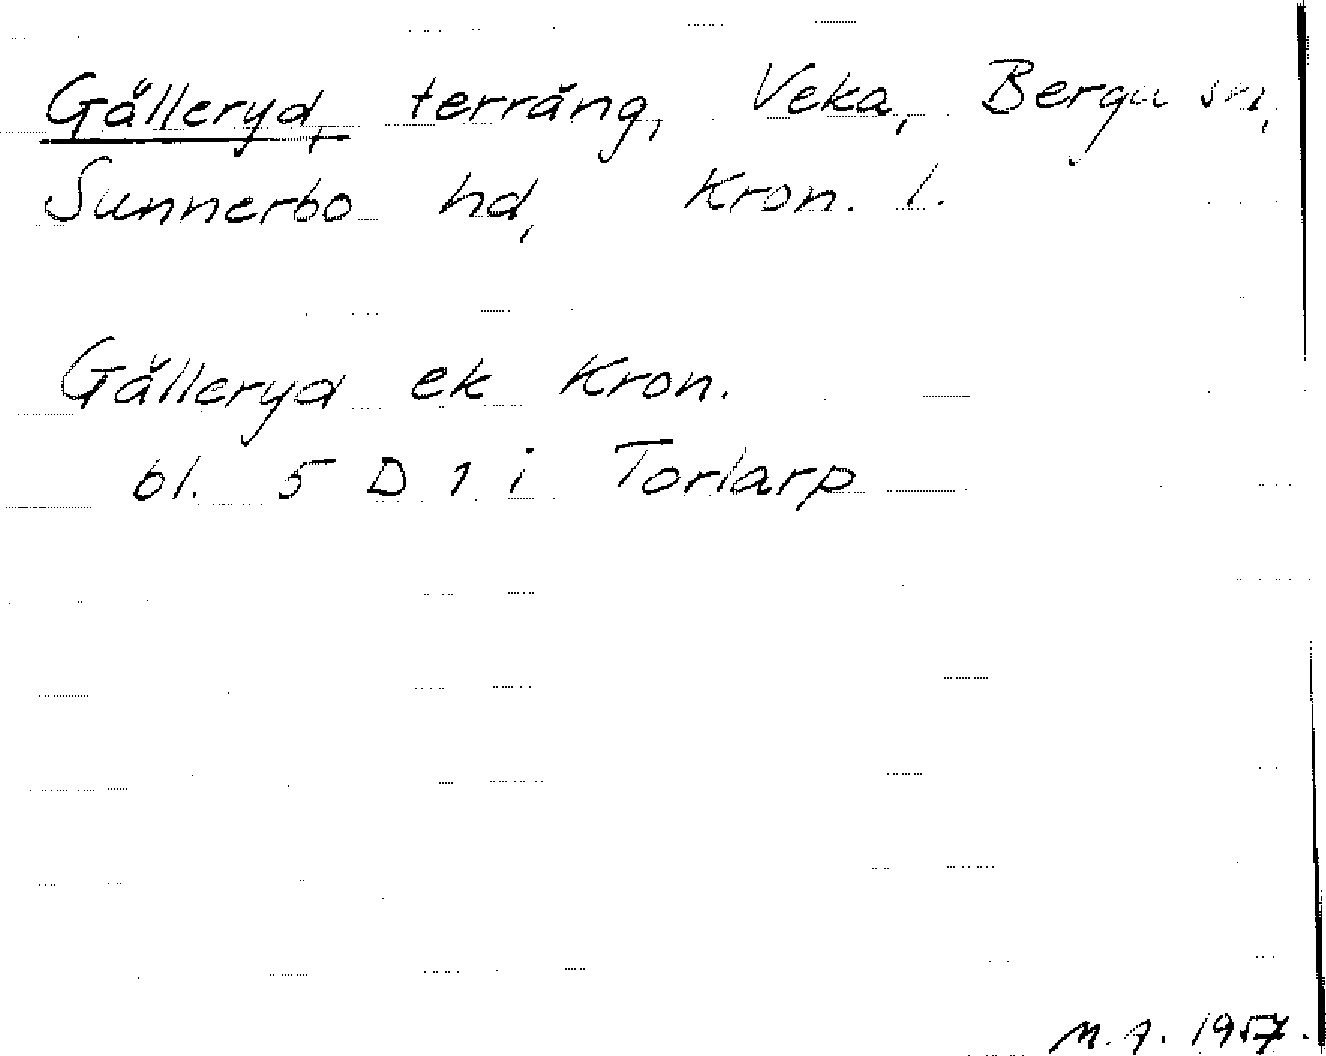 Gälleryd, terräng, Veka, Berga sn,
Sunnerbo hd, Kron. l.
Gälleryd ek Kron.
bl. 5 D 1 i Torlarp
M. A. 1957.